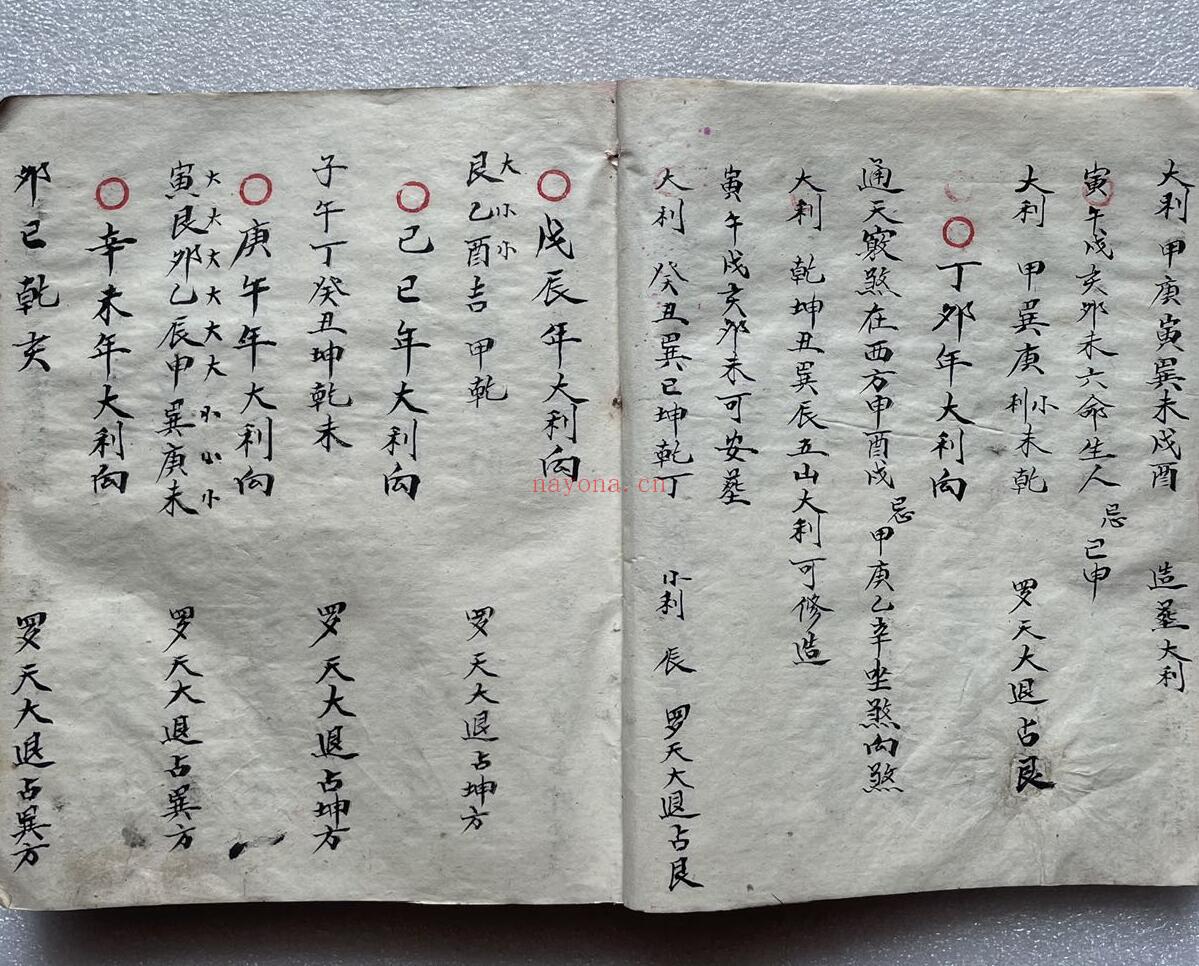 大利 甲庚寅巽未戌酉 造葬大利
寅午戌亥卯未六命生人 忌 巳申
大利 甲巽庚 小利 未乾 罗天大退占艮
丁卯年大利向
通天窍煞在西方申酉戌 忌 甲庚乙辛坐煞向煞
大利 乾坤丑巽辰五山大利可修造
寅午戌亥卯未可安葬
大利 癸丑巽巳坤乾丁 小利 辰 罗天大退占艮
戊辰年大利向
大小小
艮乙酉吉 甲乾 罗天大退占坤方
己巳年大利向
子午丁癸丑坤乾未 罗天大退占坤方
庚午年大利向
大大大大大大小小小
寅艮卯乙辰申巽庚未 罗天大退占巽方
辛未年大利向
卯巳乾亥 罗天大退占巽方
nayona.cn